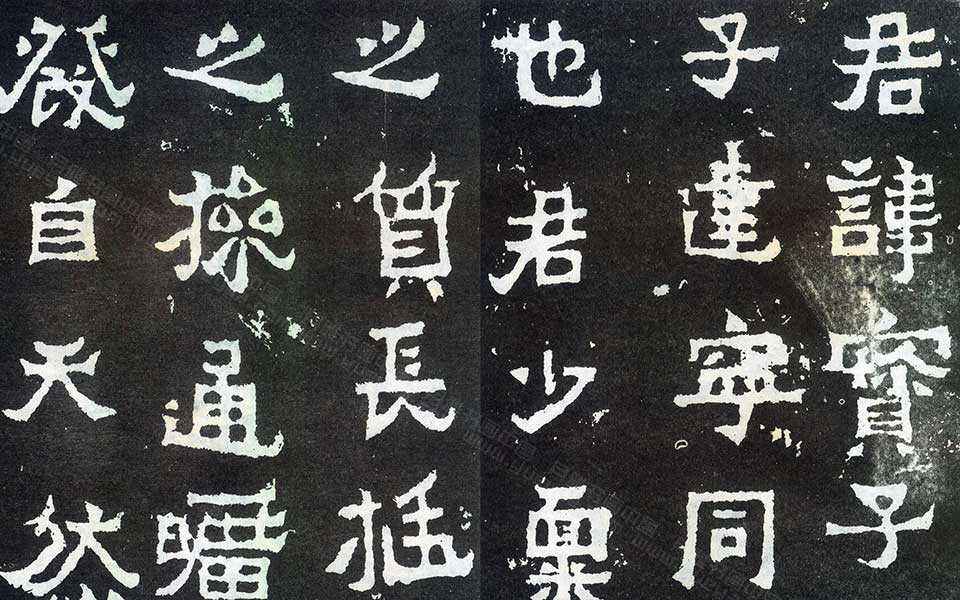 君諱寶子
子建寧同
也君少稟
之質長挺
之操通曠
發自天然